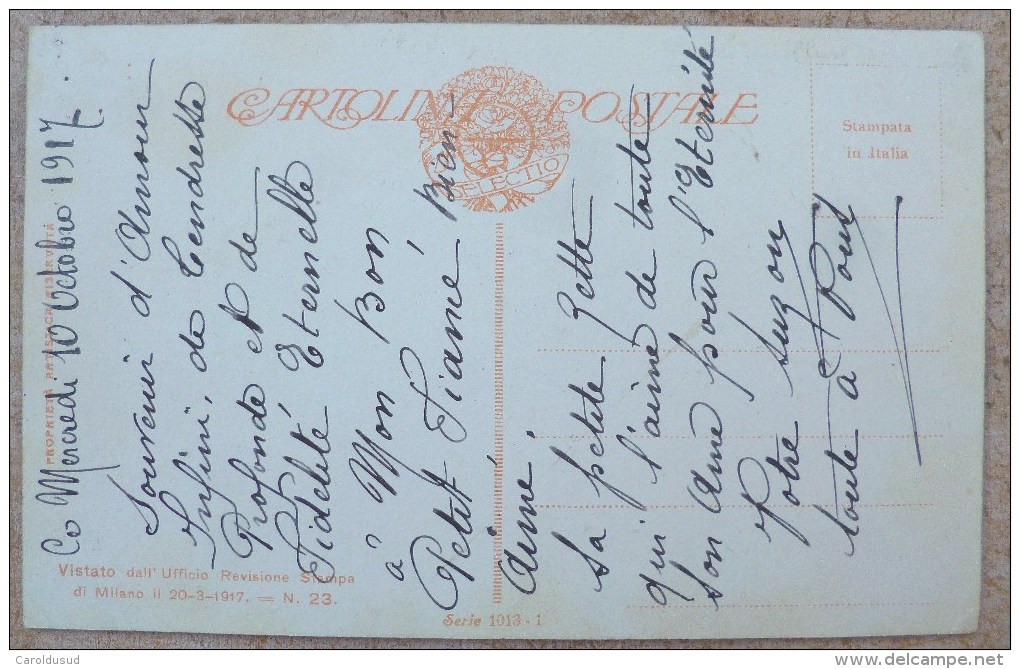 Ce Mercredi 10 Octobre 1917.
Souvenir d'Amour
Infini, de Tendresse
Profonde et de
Fidélité Eternelle
à Mon Bon
Petit Fiancé Bien-
Aimé
Sa petite Zette
qui l'aime de toute
son âme pour l'Eternité
Votre Suzon
toute à Vous
CARTOLINA POSTALE
SELECTIO
Stampata
in Italia
PROPRIETÀ ARTISTICA RISERVATA
Vistato dall'Ufficio Revisione Stampa
di Milano il 20-3-1917. = N. 23.
Serie 1013 - 1
Caroldusud
http://www.delcampe.net